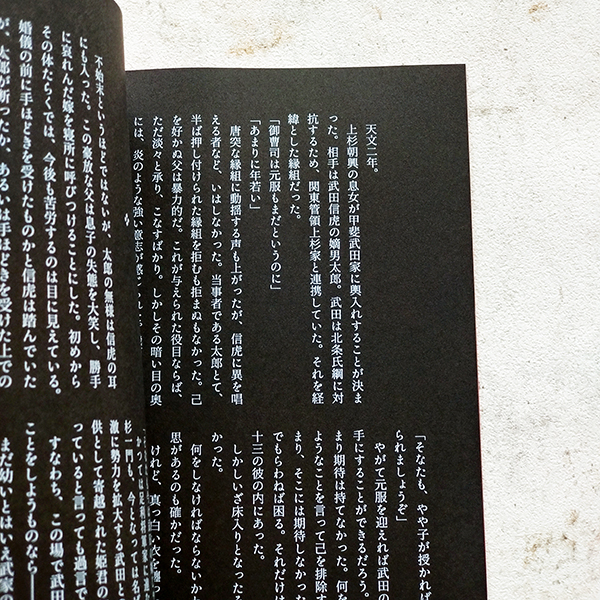 天文二年。
上杉朝興の息女が甲斐武田家に輿入れすることが決ま
った。相手は武田信虎の嫡男太郎。武田は北条氏綱に対
抗するため、関東管領上杉家と連携していた。それを経
緯とした縁組だった。
「御曹司は元服もまだというのに」
「あまりに年若い」
唐突な縁組に動揺する声も上がったが、信虎に異を唱
える者など、いはしなかった。当事者である太郎とて、
半ば押し付けられた縁組を拒むも拒まぬもなかった。己
を好かぬ父は暴力的だ。これが与えられた役目ならば、
ただ淡々と承り、こなすばかり。しかしその暗い目の奥
には、炎のような強い意志が
「そなたも、やや子が授かれば
られましょうぞ」
やがて元服を迎えれば武田の
手にすることができるだろう。
まり期待は持てなかった。何を
ようなことを言って己を排除す
まり、そこには期待しなかった
でもらわねば困る。それだけは
十三の彼の内にあった。
しかしいざ床入りとなった
かった。
何をしなければならないか
思があるのも確かだった。
けれど、真っ白い衣を纏っ
杉一門も、今となっては名ば
激に勢力を拡大する武田と
供として寄越された姫君の
っていると言っても過言で
すなわち、この場で武田
ことをしようものなら――
まだ幼いとはいえ武家
不始末というほどではないが、太郎の無様は信虎の耳
にも入った。この豪放な父は息子の失態を大笑し、勝手
に哀れんだ嫁を寝所に呼びつけることにした。初めから
その体たらくでは、今後も苦労するのは目に見えている。
婚儀の前に手ほどきを受けたものかと信虎は踏んでいた
が、太郎が断ったか、あるいは手ほどきを受けた上での